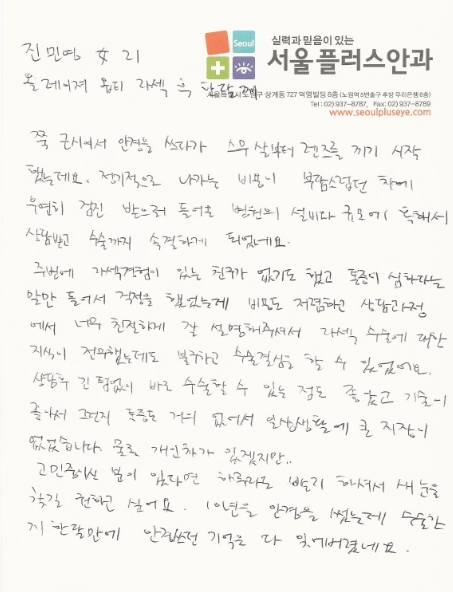 실력과 믿음이 있는
Seoul
서울플러스안과
서울특별시 노원구 상계동 727 덕영빌딩 6층 (노원역 5번출구 우방 우리은행 6층)
Tel : 02) 937-8787, Fax: 02) 937-8789
www.seoulpluseye.com
진민영 女 21
올레이져 옵티 라섹 후 한달
쭉 근시여서 안경을 쓰다가 스무살부터 렌즈를 끼기 시작
했는데요. 정기적으로 나가는 비용이 부담스럽던 차에
우연히 검진 받으러 들어온 병원의 설비와 규모에 혹해서
상담받고 수술까지 속결하게 되었네요.
주변에 라섹경험이 있는 친구가 없기도 했고 통증이 심하다는
말만 들어서 걱정을 했었는데 비용도 저렴하고 상담과정
에서 너무 친절하게 잘 설명해주셔서 라섹 수술에 대한
지식이 전무했는데도 불구하고 수술결심을 할 수 있었어요.
상담후 긴 텀없이 바로 수술할 수 있는 점도 좋았고 기술이
좋아서 그런지 통증도 거의 없어서 일상생활에 큰 지장이
없었습니다. 물론 개인차가 있겠지만..
고민중이신 분이 있다면 하루라도 빨리 하셔서 새 눈을
찾길 권하고 싶어요. 10년을 안경을 썼는데 수술한
지 한달만에 안경쓰던 기억을 다 잊어버렸네요.